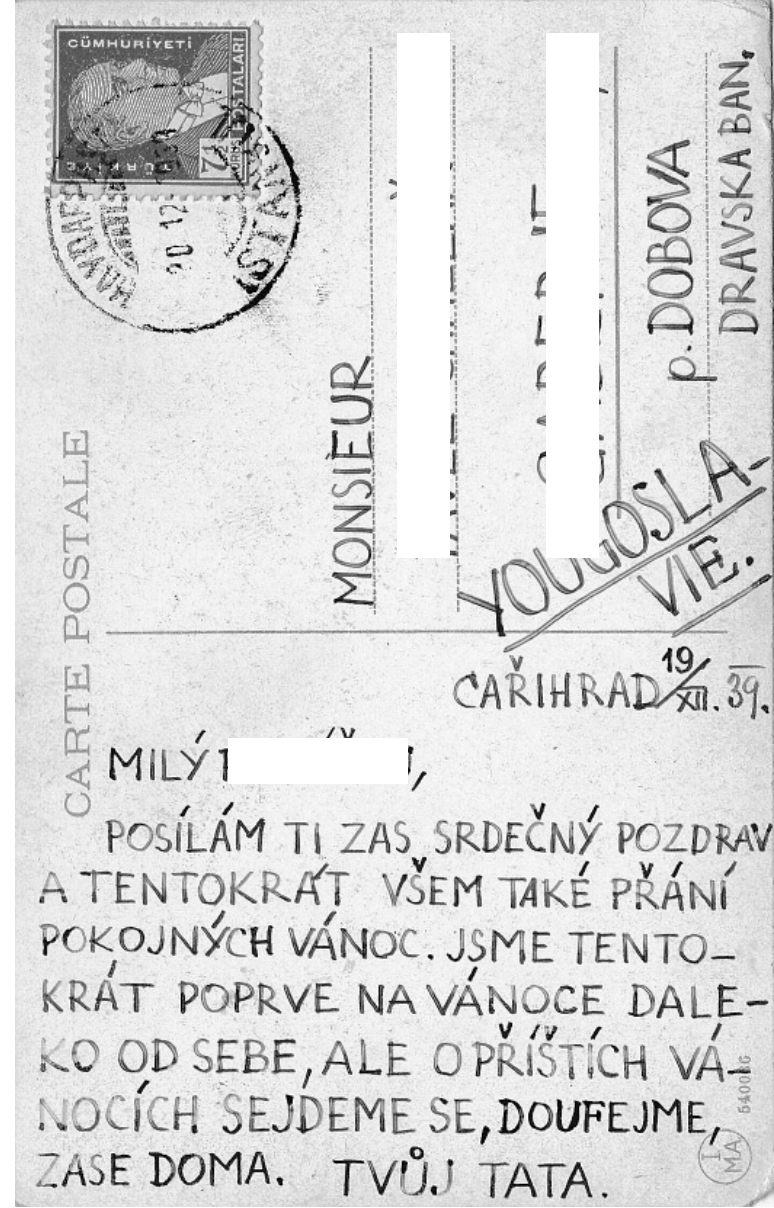 CÜMHURİYETİ
POSTALARI
TÜRKİYE
7½
KURUŞ
20 12
CARTE POSTALE
MONSIEUR
p. DOBOVA
DRAVSKA BAN.
YOUGOSLA-
VIE.
CAŘIHRAD 19/XII. 39.
MILÝ
POSÍLÁM TI ZAS SRDEČNÝ POZDRAV
A TENTOKRÁT VŠEM TAKÉ PŘÁNÍ
POKOJNÝCH VÁNOC. JSME TENTO-
KRÁT POPRVE NA VÁNOCE DALE-
KO OD SEBE, ALE O PŘÍŠTÍCH VÁ-
NOCÍCH SEJDEME SE, DOUFEJME,
ZASE DOMA. TVŮJ TATA.
I
MA